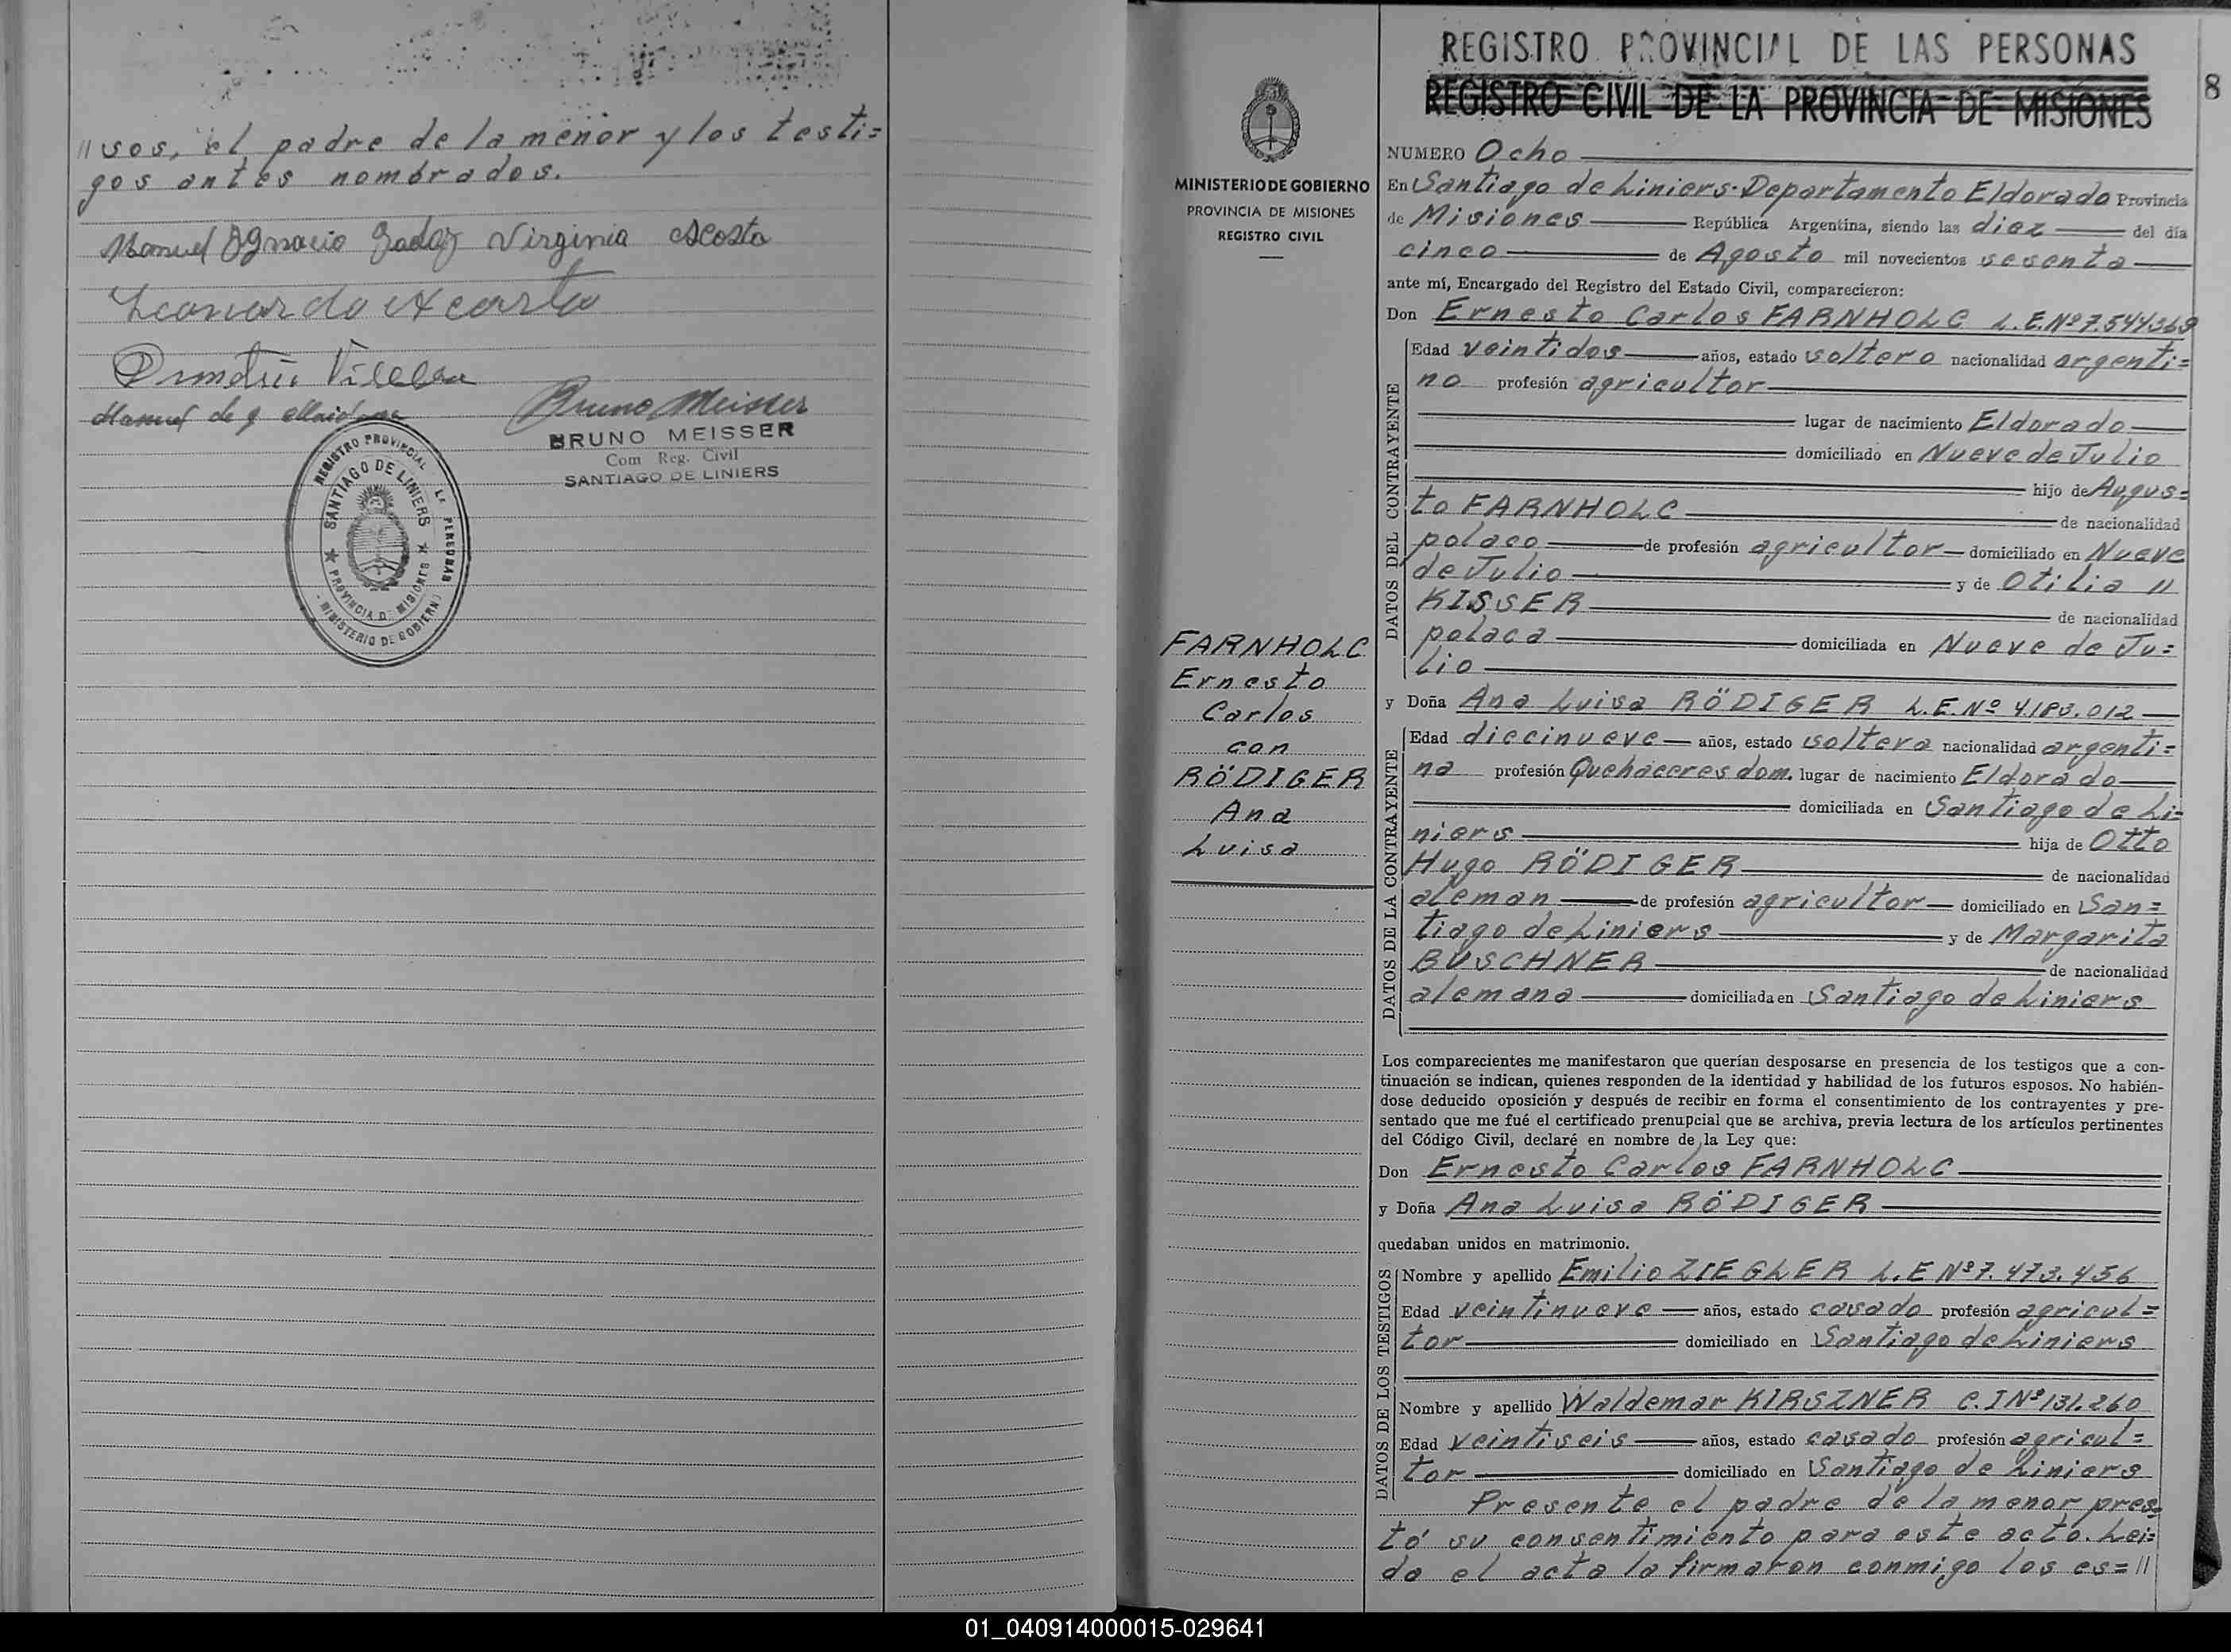 //sos, el padre de la menor y los testi=
gos antes nombrados.
Manuel Ignacio Godoy Virginia Acosta
Leonardo Acosta
Manuel de
Bruno Meisser
BRUNO MEISSER
Com Reg. Civil
SANTIAGO DE LINIERS
REGISTRO PROVINCIAL DE LAS PERSONAS
SANTIAGO DE LINIERS
PROVINCIA DE MISIONES
MINISTERIO DE GOBIERNO
MINISTERIO DE GOBIERNO
PROVINCIA DE MISIONES
REGISTRO CIVIL
FARNHOLC
Ernesto
Carlos
con
RÖDIGER
Ana
Luisa
REGISTRO PROVINCIAL DE LAS PERSONAS
REGISTRO CIVIL DE LA PROVINCIA DE MISIONES
8
NUMERO Ocho
En Santiago de Liniers-Departamento Eldorado Provincia
de Misiones República Argentina, siendo las diez del día
cinco de Agosto mil novecientos sesenta
ante mí, Encargado del Registro del Estado Civil, comparecieron:
Don Ernesto Carlos FARNHOLC L.E.Nº 7.544369
DATOS DEL CONTRAYENTE
Edad veintidos años, estado soltero nacionalidad argenti=
no profesión agricultor
lugar de nacimiento Eldorado
domiciliado en Nueve de Julio
hijo de Augus=
to FARNHOLC de nacionalidad
polaco de profesión agricultor domiciliado en Nueve
de Julio y de Otilia //
KISSER de nacionalidad
polaca domiciliada en Nueve de Ju=
lio
y Doña Ana Luisa RÖDIGER L.E.Nº 4.183.012
DATOS DE LA CONTRAYENTE
Edad diecinueve años, estado soltera nacionalidad argenti=
na profesión Quehaceres dom. lugar de nacimiento Eldorado
domiciliada en Santiago de Li=
niers hija de Otto
Hugo RÖDIGER de nacionalidad
aleman de profesión agricultor domiciliado en San=
tiago de Liniers y de Margarita
BUSCHNER de nacionalidad
alemana domiciliada en Santiago de Liniers
Los comparecientes me manifestaron que querían desposarse en presencia de los testigos que a con-
tinuación se indican, quienes responden de la identidad y habilidad de los futuros esposos. No habién-
dose deducido oposición y después de recibir en forma el consentimiento de los contrayentes y pre-
sentado que me fué el certificado prenupcial que se archiva, previa lectura de los artículos pertinentes
del Código Civil, declaré en nombre de la Ley que:
Don Ernesto Carlos FARNHOLC
y Doña Ana Luisa RÖDIGER
quedaban unidos en matrimonio.
DATOS DE LOS TESTIGOS
Nombre y apellido Emilio ZIEGLER L.E Nº 7.473.456
Edad veintinueve años, estado casado profesión agricul=
tor domiciliado en Santiago de Liniers
Nombre y apellido Waldemar KIRSZNER C.I Nº 131.260
Edad veintiseis años, estado casado profesión agricul=
tor domiciliado en Santiago de Liniers
Presente el padre de la menor pres=
tó su consentimiento para este acto. Lei=
da el acta la firmaron conmigo los es=//
01_040914000015-029641